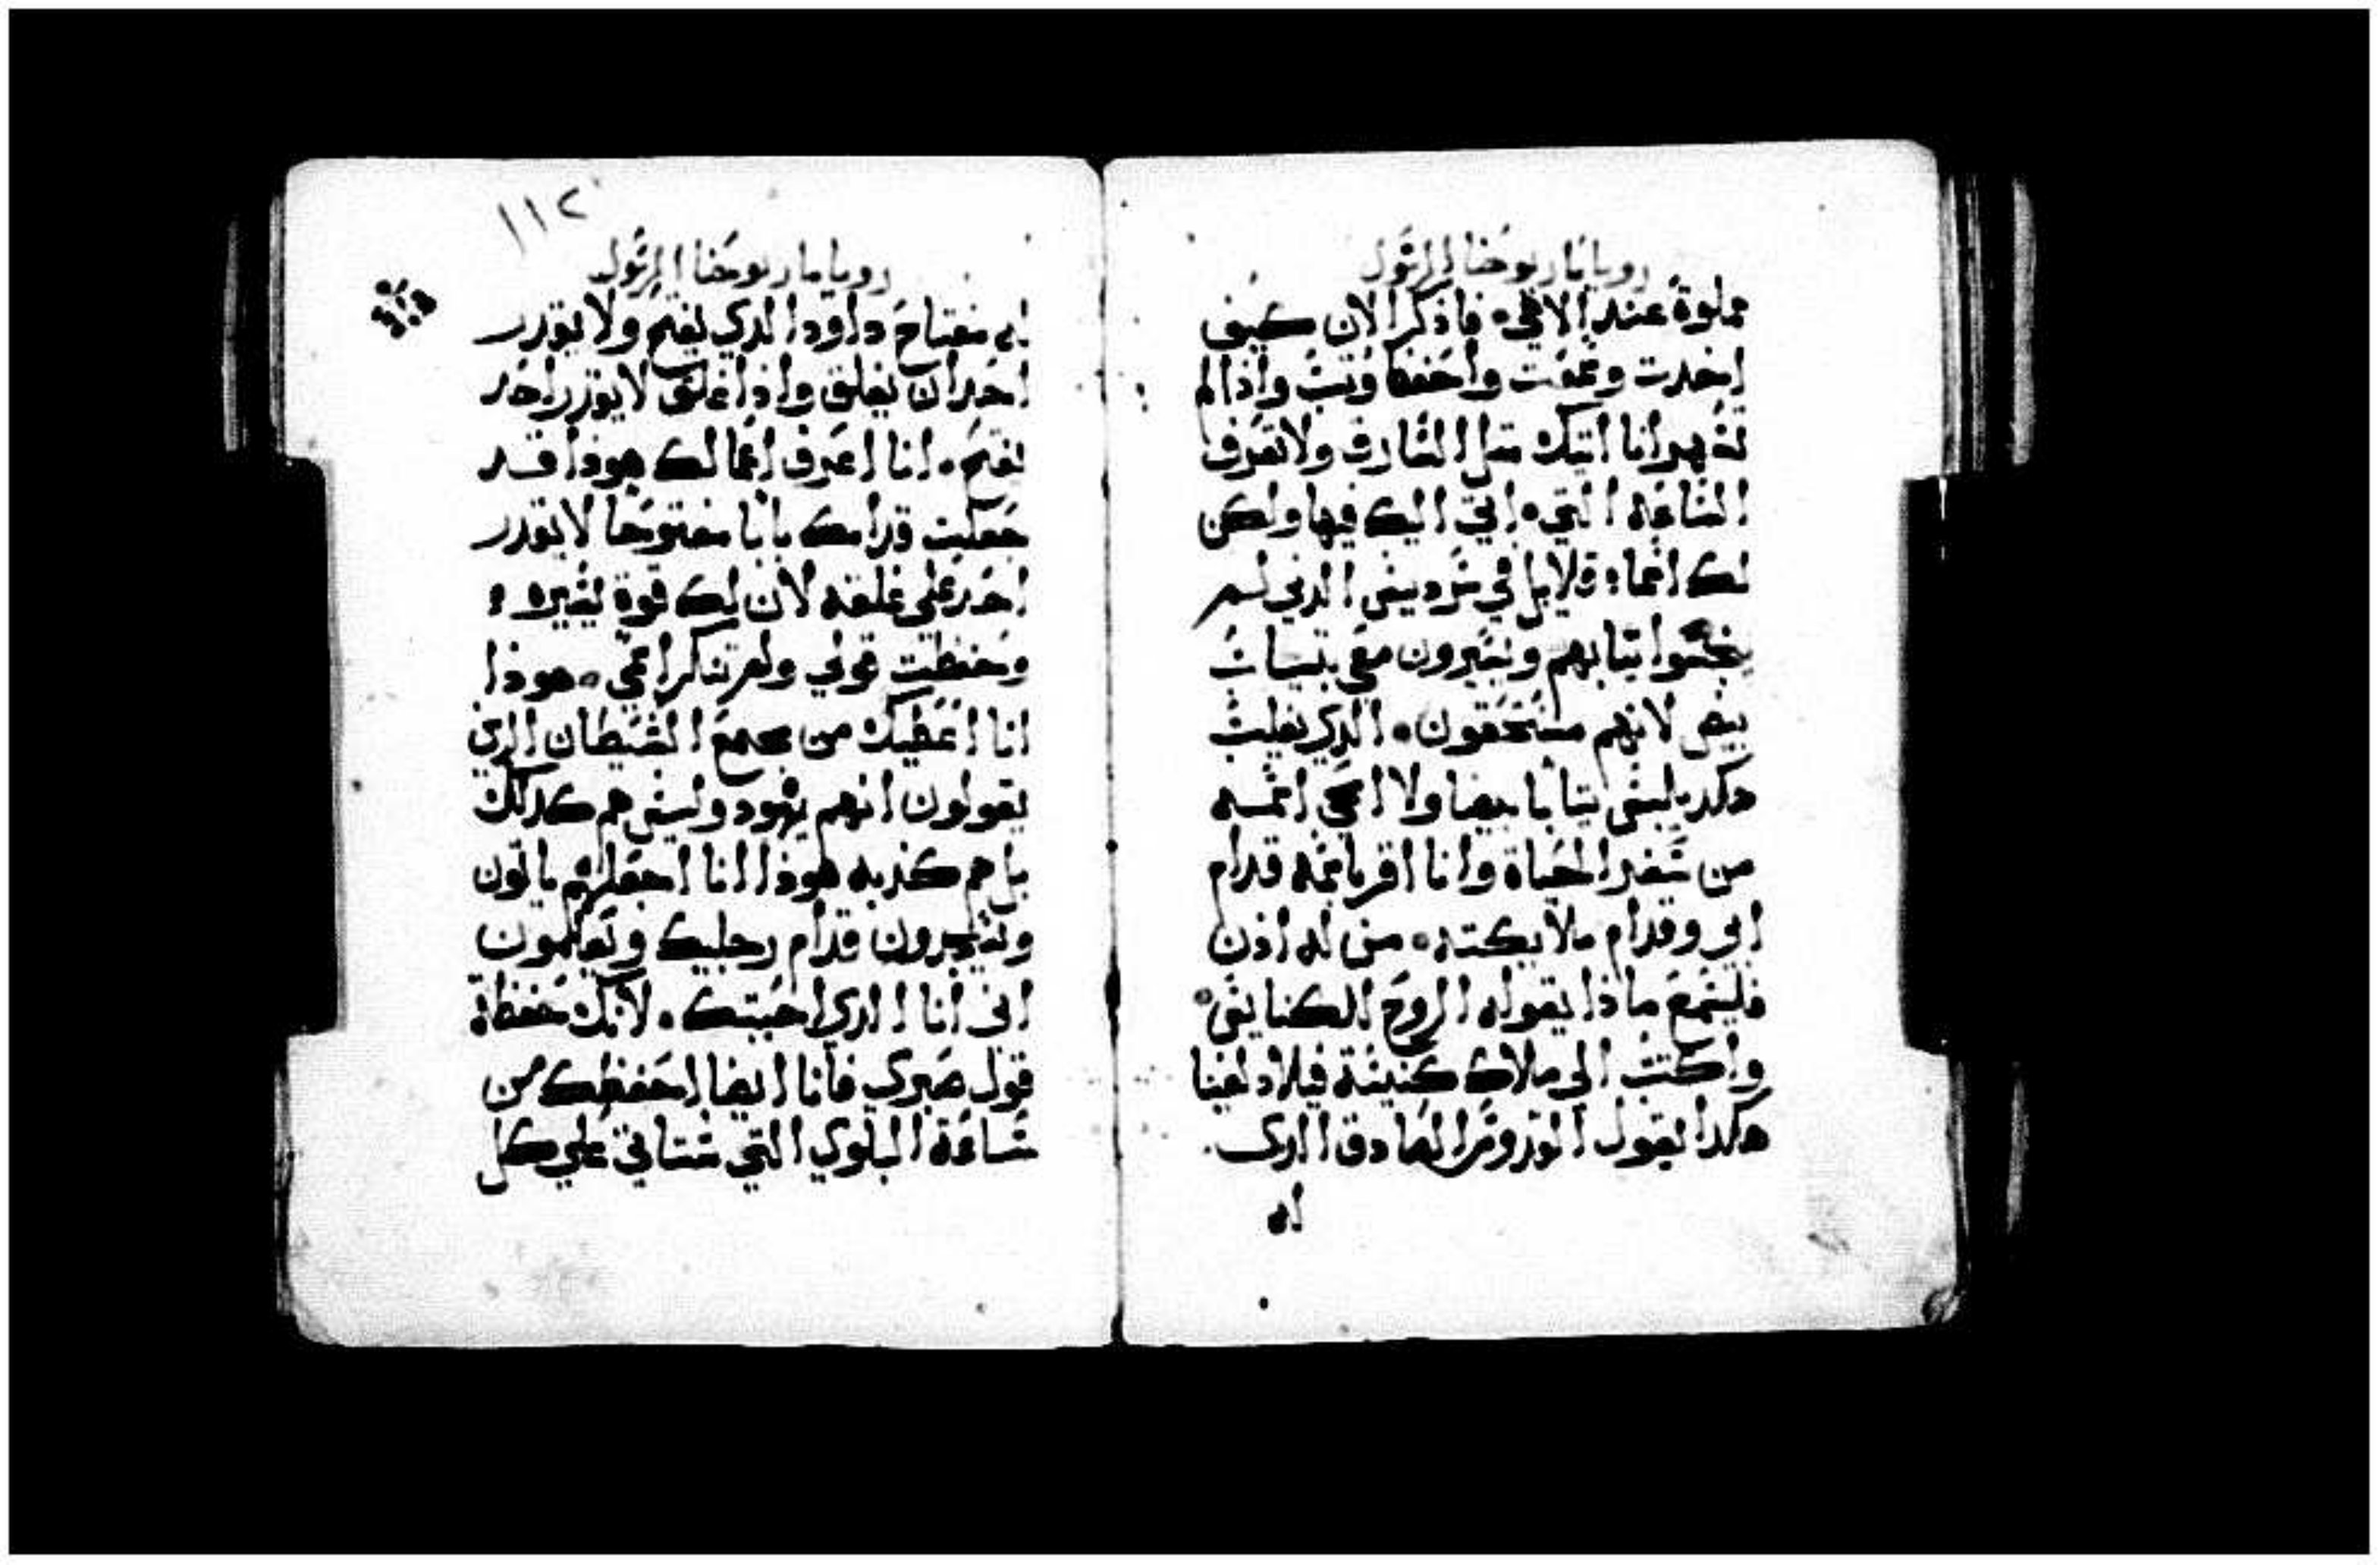 رويا مار يوحنا الرسول
مملوة عند الاهي. فاذكر الان كيف
اخدت وسمعت واحفظ وتب واذا لم
تسهر انا اتيك متل السارق ولا تعرف
الساعه التي اتي اليك فيها ولكن
لك اسماء قلايل في سرديس الدي لم
ينجسوا تيابهم ويسيرون معي بتياب
بيض لانهم مستحقون. الدي يغلب
هكدي يلبس تيابا بيضا ولا امحي اسمه
من سفر الحياة وانا اقر باسمه قدام
ابي وقدام ملايكته. من له اذن
فليسمع ماذا يقوله الروح للكنايس.
واكتب الي ملاك كنيسة فيلادلفيا
هكدا يقول القدوس الصادق الدي
له
١١٢
رويا مار يوحنا الرسول
له مفتاح داوود الدي يفتح ولا يقدر
احد ان يغلق واذا اغلق لا يقدر احد
يفتح. انا اعرف اعمالك هوذا قد
جعلت قدامك بابا مفتوحا لا يقدر
احد علي غلقه لان لك قوة يسيره
وحفظت قولي ولم تنكر اسمي. هوذا
انا اعطيك من مجمع الشيطان الدي
يقولون انهم يهود وليس هم كدلك
بل هم كذبه هوذا انا اجعلهم ياتون
ويسجدون قدام رجليك ويعلمون
اني انا الدي احببتك. لانك حفظة
قول صبري فانا ايضا احفظك من
ساعة البلوي التي ستاتي علي كل